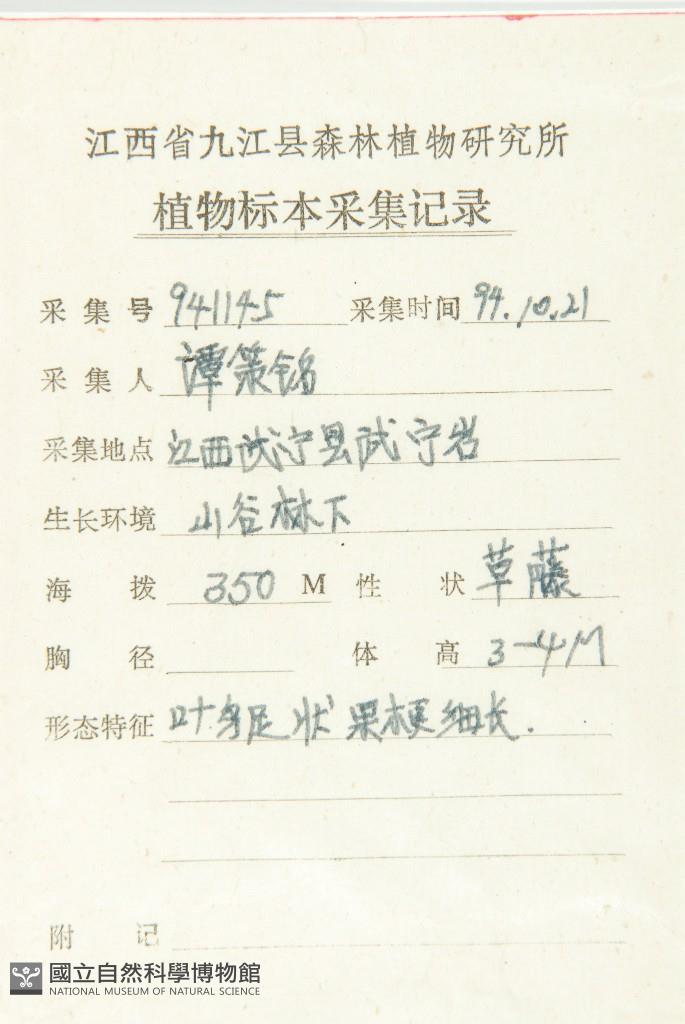 江西省九江县森林植物研究所
植物标本采集记录
采集号 941145 采集时间 94.10.21
采集人 谭策铭
采集地点 江西武宁县武宁岩
生长环境 山谷林下
海拨 350 M 性状 草藤
胸径 体高 3-4M
形态特征 叶鸟足状 果梗细长.
附记
國立自然科學博物館
NATIONAL MUSEUM OF NATURAL SCIENCE